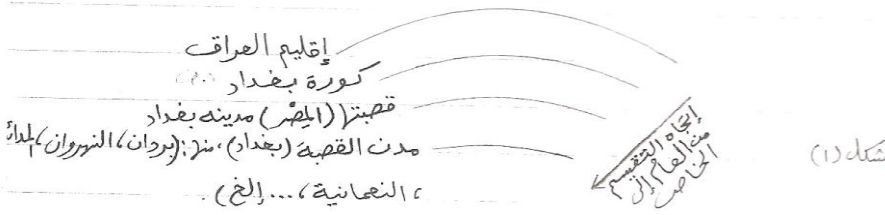 إقليم العراق
كورة بغداد
قصبتها (المِصْر) مدينه بغداد
مدن القصبة (بغداد)، منها: (بردان، النهروان، المدائ
، النعمانية، ... إلخ).
إتجاه التقسيم
من العام إلى
الخاص
شكل (١)